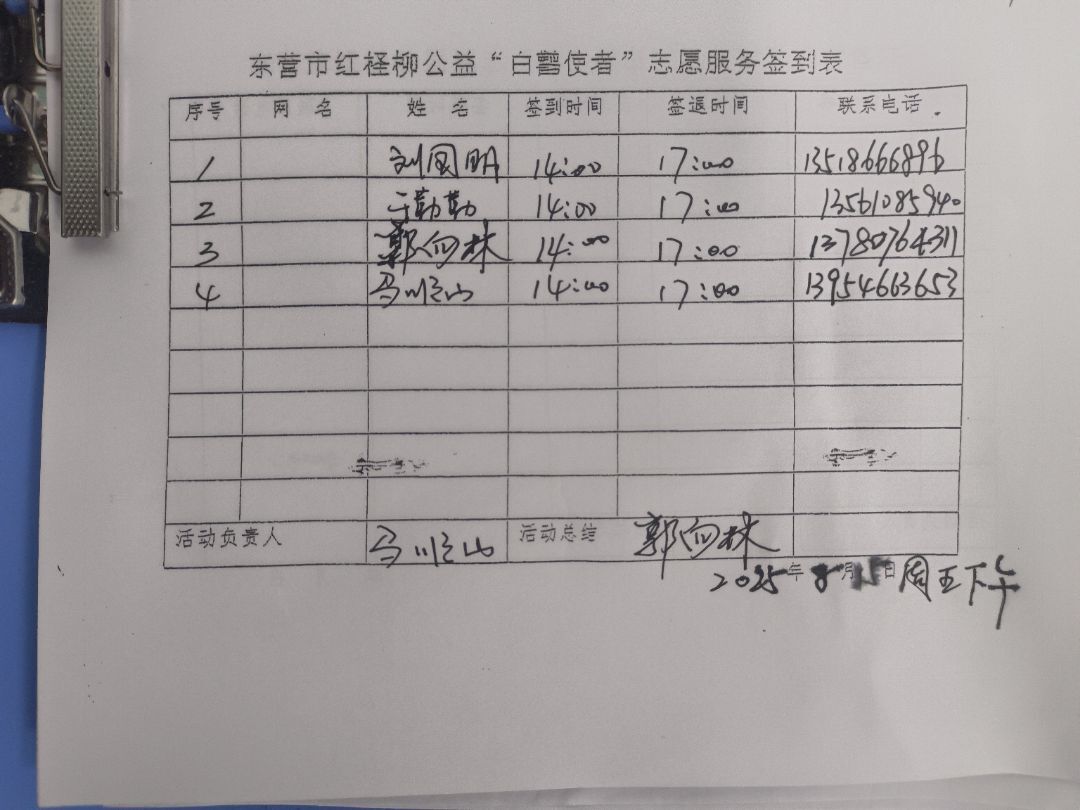 东营市红柽柳公益“白鹳使者”志愿服务签到表
序号 网 名 姓 名 签到时间 签退时间 联系电话
1 刘国明 14:00 17:00 13518666896
2 于勤勤 14:00 17:00 13561085940
3 郭向林 14:00 17:00 13780764311
4 马顺山 14:00 17:00 13954663653
活动负责人 马顺山 活动总结 郭向林
2025年8月15日周五下午